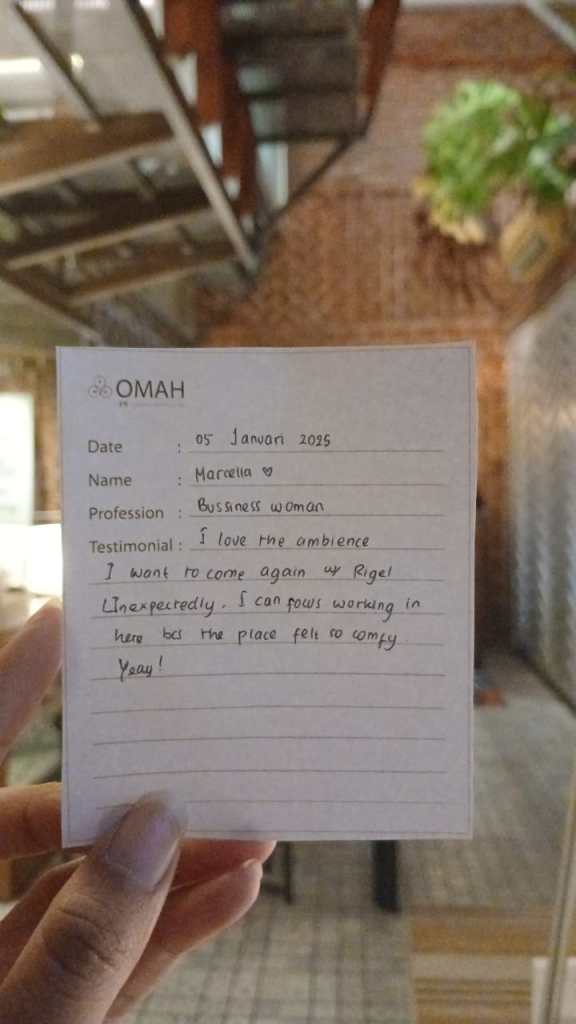 OMAH
Date : 05 Januari 2025
Name : Marcella ♡
Profession : Bussiness woman
Testimonial : I love the ambience
I want to come again w/ Rigel
Unexpectedly. I can focus working in
here bcs the place felt so comfy.
Yeay!